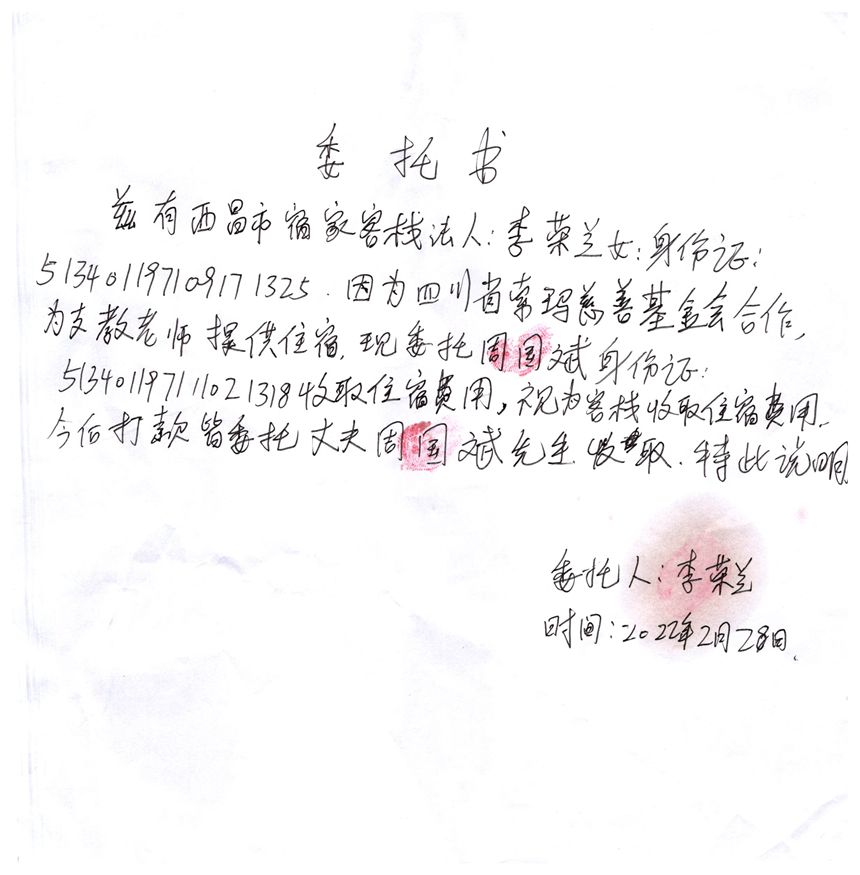 委托书
兹有西昌市宿家客栈法人:李荣兰女:身份证:
513401197109171325.因为四川省索玛慈善基金会合作,
为支教老师提供住宿.现委托周国斌身份证:
513401197111021318收取住宿费用,视为客栈收取住宿费用.
今后打款皆委托丈夫周国斌先生收取.特此说明
委托人:李荣兰
时间:2022年2月28日.